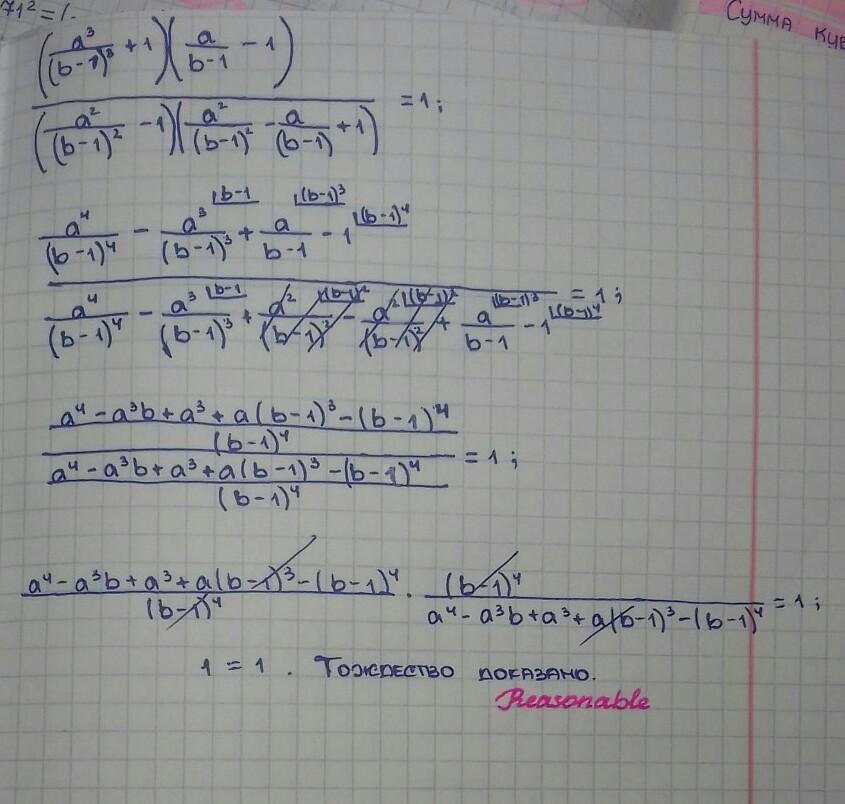 71² = 1.
Сумма куб
((a³/(b-1)³ + 1)(a/(b-1) - 1)) / ((a²/(b-1)² - 1)(a²/(b-1)² - a/(b-1) + 1)) = 1;
(a⁴/(b-1)⁴ - a³/(b-1)³ ⌊b-1 + a/(b-1) ⌊(b-1)³ - 1 ⌊(b-1)⁴) / (a⁴/(b-1)⁴ - a³/(b-1)³ ⌊b-1 + a²/(b-1)² ⌊(b-1)² - a²/(b-1)² ⌊(b-1)² + a/(b-1) ⌊(b-1)³ - 1 ⌊(b-1)⁴) = 1;
((a⁴ - a³b + a³ + a(b-1)³ - (b-1)⁴)/(b-1)⁴) / ((a⁴ - a³b + a³ + a(b-1)³ - (b-1)⁴)/(b-1)⁴) = 1;
(a⁴ - a³b + a³ + a(b-1)³ - (b-1)⁴)/(b-1)⁴ · (b-1)⁴/(a⁴ - a³b + a³ + a(b-1)³ - (b-1)⁴) = 1;
1 = 1. Тождество доказано.
Reasonable